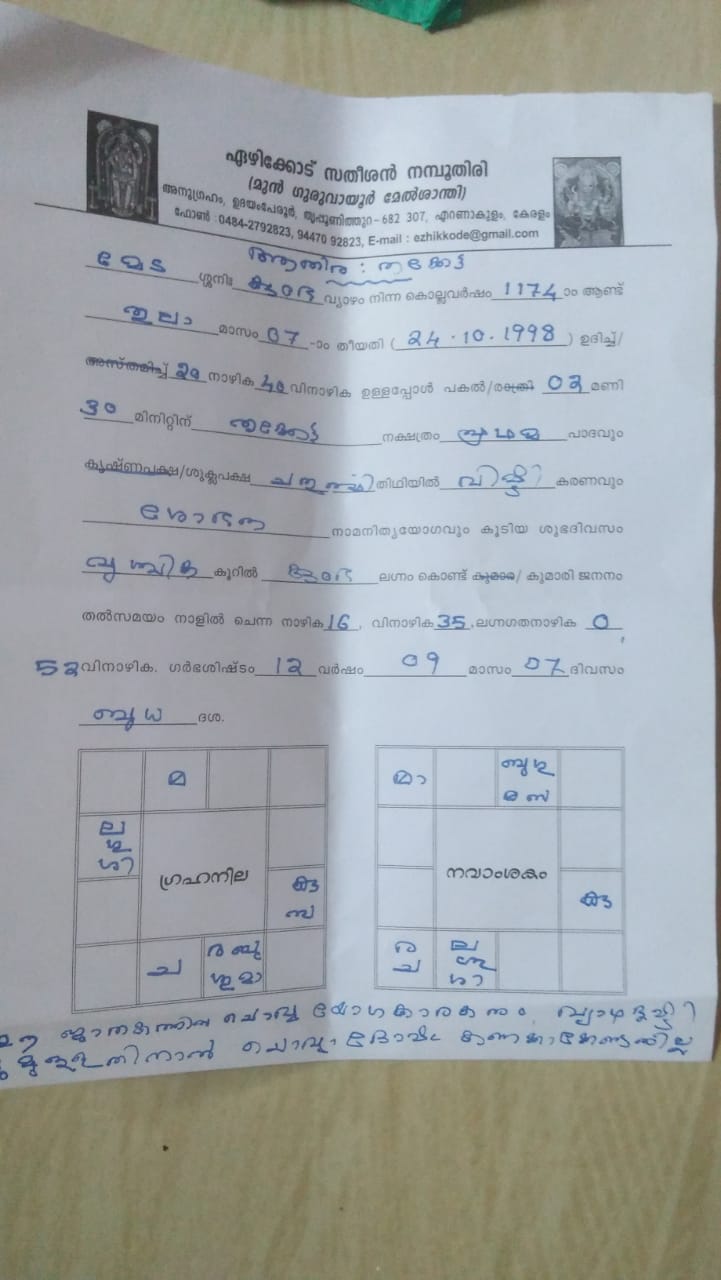 ഏഴിക്കോട് സതീശൻ നമ്പൂതിരി
(മുൻ ഗുരുവായൂർ മേൽശാന്തി)
അനുഗ്രഹം, ഉദയംപേരൂർ, തൃപ്പൂണിത്തുറ - 682 307, എറണാകുളം, കേരളം
ഫോൺ : 0484-2792823, 94470 92823, E-mail : ezhikkode@gmail.com
ആതിര : തൃക്കേട്ട
മേട ശ്ശനിഃ കുംഭ വ്യാഴം നിന്ന കൊല്ലവർഷം 1174 ാം ആണ്ട്
തുലാ മാസം 07 -ാം തീയതി ( 24.10.1998 ) ഉദിച്ച്/
അസ്തമിച്ച് 20 നാഴിക 40 വിനാഴിക ഉള്ളപ്പോൾ പകൽ/രാത്രി 02 മണി
30 മിനിറ്റിന് തൃക്കേട്ട നക്ഷത്രം പ്രഥമ പാദവും
കൃഷ്ണപക്ഷ/ശുക്ലപക്ഷ ചതുർത്ഥി തിഥിയിൽ വിഷ്ടി കരണവും
ശോഭന നാമനിത്യയോഗവും കൂടിയ ശുഭദിവസം
വൃശ്ചിക കൂറിൽ കുംഭ ലഗ്നം കൊണ്ട് കുമാര/ കുമാരി ജനനം
തൽസമയം നാളിൽ ചെന്ന നാഴിക 16, വിനാഴിക 35, ലഗ്നഗതനാഴിക 0,
52 വിനാഴിക. ഗർഭശിഷ്ടം 12 വർഷം 09 മാസം 07 ദിവസം
ബുധ ദശ.
മ
ല
ഗു
ശി
ഗ്രഹനില
കു
സ
ച
ര ബു
ശു മാ
മാ
ബു ഗു
മ സ
നവാംശകം
കു
ര
ച
ല
ശു
ശി
ഈ ജാതകത്തിൽ ചൊവ്വ യോഗകാരകനും, വ്യാഴദൃഷ്ടി
ഉള്ളതിനാൽ ചൊവ്വാ ദോഷം കണക്കാക്കേണ്ടതില്ല